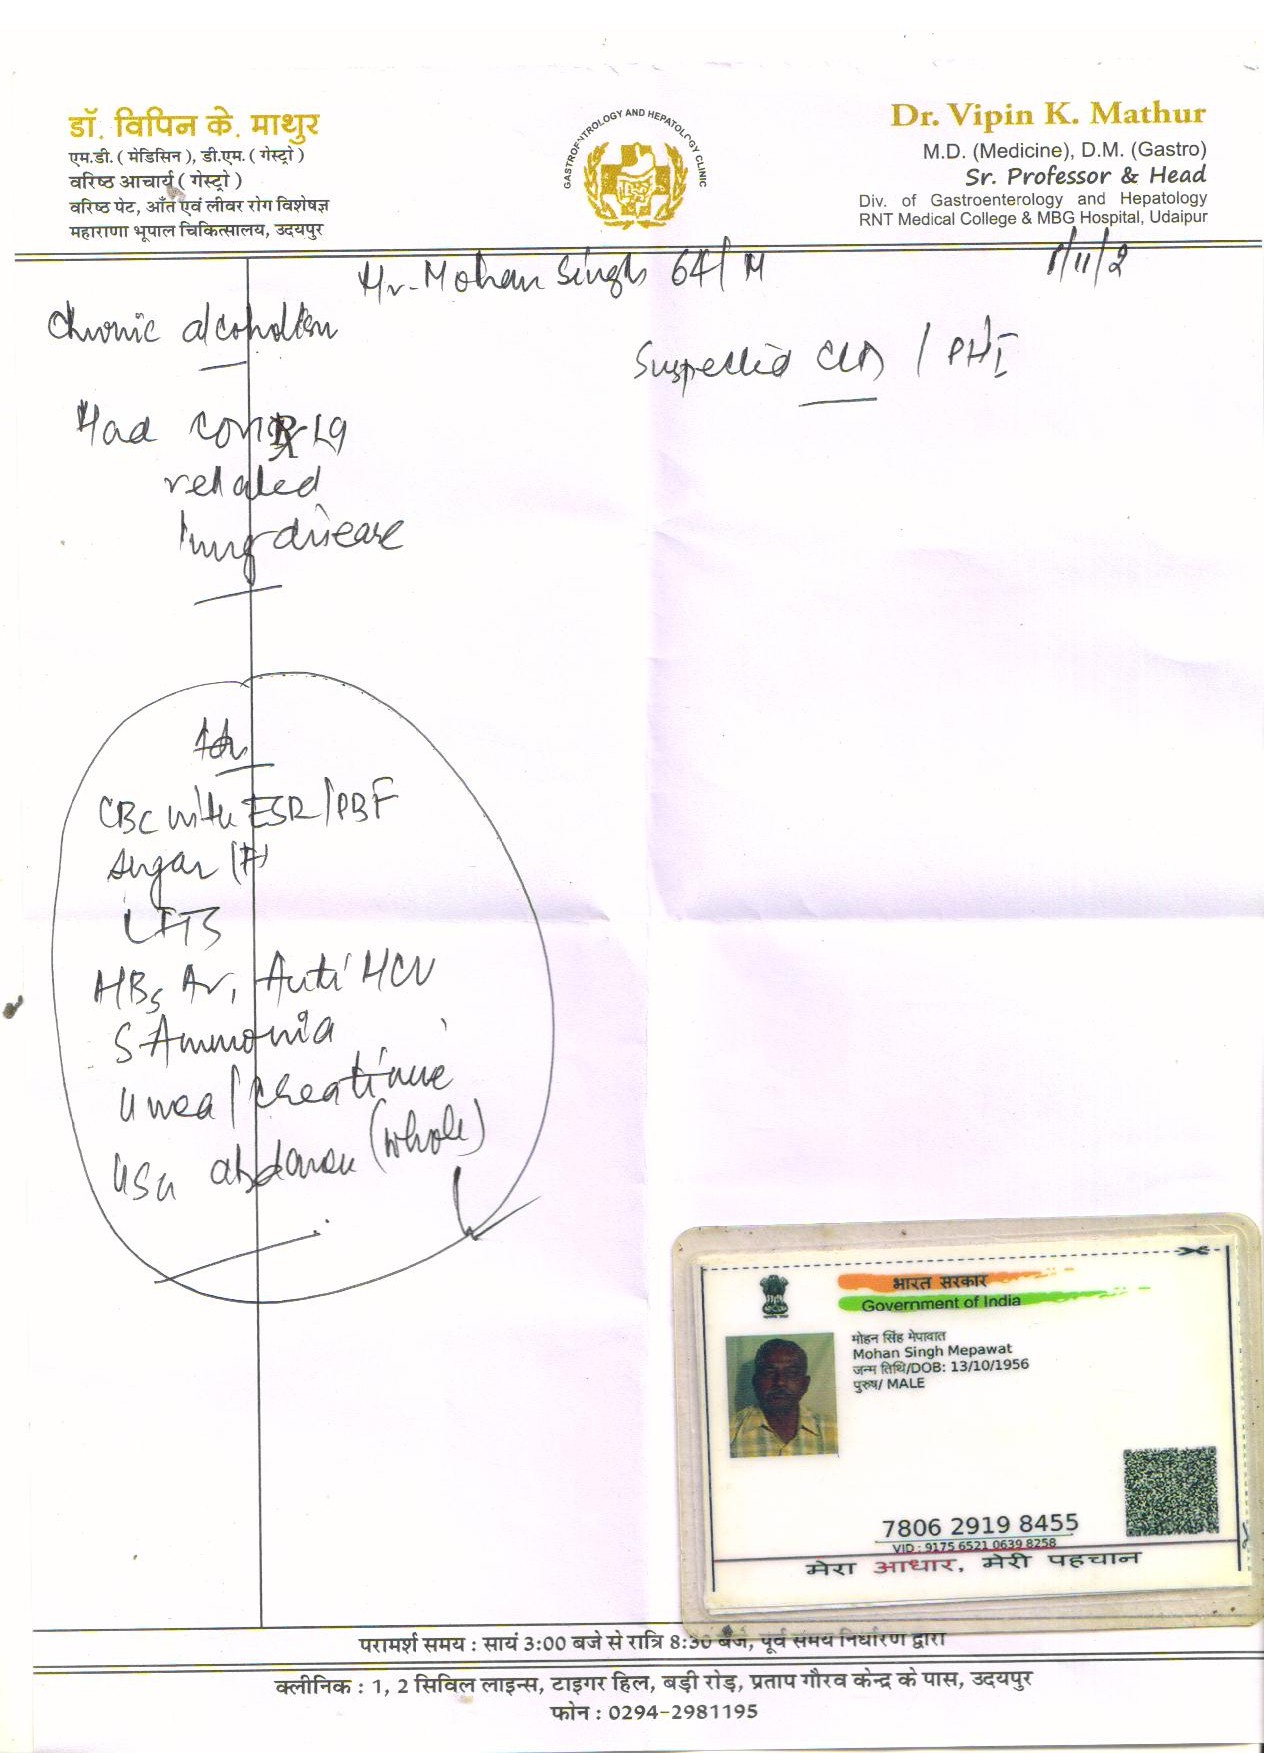 डॉ. विपिन के. माथुर
एम.डी. ( मेडिसिन ), डी.एम. ( गेस्ट्रो )
वरिष्ठ आचार्य ( गेस्ट्रो )
वरिष्ठ पेट, आँत एवं लीवर रोग विशेषज्ञ
महाराणा भूपाल चिकित्सालय, उदयपुर
GASTROENTROLOGY AND HEPATOLOGY CLINIC
Dr. Vipin K. Mathur
M.D. (Medicine), D.M. (Gastro)
Sr. Professor & Head
Div. of Gastroenterology and Hepatology
RNT Medical College & MBG Hospital, Udaipur
Mr. Mohan Singh 64/M
1/11/2
Chronic alcoholism
Suspected CLD / PHT
Had
related
lung disease
CBC with ESR/PBF
Sugar (F)
LFTS
HBs Ag, Anti HCV
S Ammonia
Urea/Creatinine
USG abdomen (whole)
भारत सरकार
Government of India
मोहन सिंह मेपावात
Mohan Singh Mepawat
जन्म तिथि/DOB: 13/10/1956
पुरुष/ MALE
7806 2919 8455
VID : 9175 6521 0639 8258
मेरा आधार, मेरी पहचान
परामर्श समय : सायं 3:00 बजे से रात्रि 8:30 बजे, पूर्व समय निर्धारण द्वारा
क्लीनिक : 1, 2 सिविल लाइन्स, टाइगर हिल, बड़ी रोड़, प्रताप गौरव केन्द्र के पास, उदयपुर
फोन : 0294-2981195